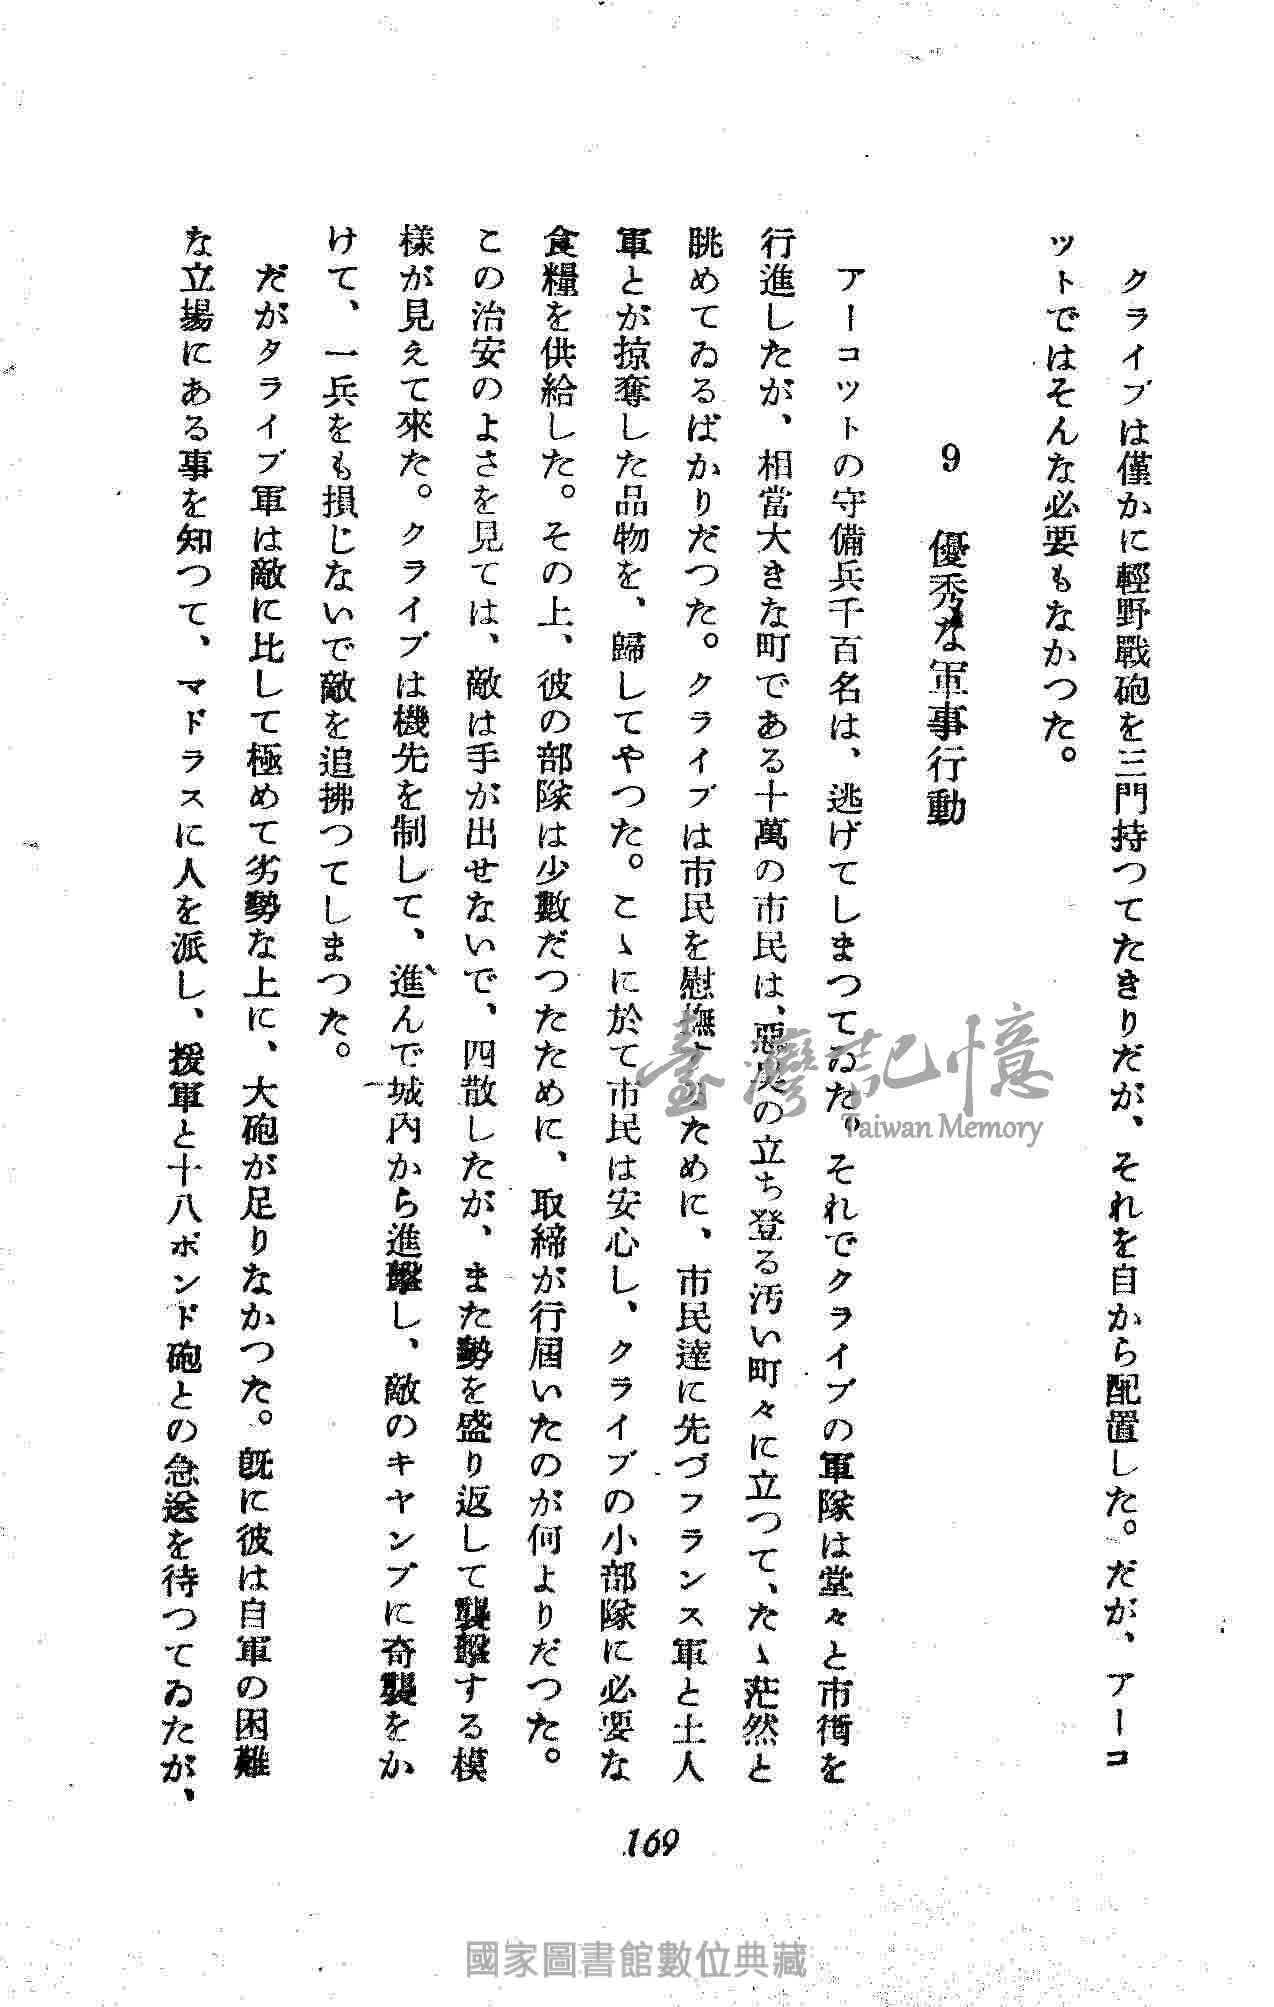 クライブは僅かに輕野戰砲を三門持つてたきりだが、それを自から配置した。だが、アーコ
ツトではそんな必要もなかつた。
9 優秀な軍事行動
アーコツトの守備兵千百名は、逃げてしまつてゐた。それでクライブの軍隊は堂々と市街を
行進したが、相當大きな町である十萬の市民は、惡臭の立ち登る汚い町々に立つて、たゝ茫然と
眺めてゐるばかりだつた。クライブは市民を慰撫するために、市民達に先づフランス軍と土人
軍とが掠奪した品物を、歸してやつた。こゝに於て市民は安心し、クライブの小部隊に必要な
食糧を供給した。その上、彼の部隊は少數だつたために、取締が行届いたのが何よりだつた。
この治安のよさを見ては、敵は手が出せないで、四散したが、また勢を盛り返して襲擊する模
樣が見えて來た。クライブは機先を制して、進んで城內から進擊し、敵のキヤンプに奇襲をか
けて、一兵をも損じないで敵を追拂つてしまつた。
だがタライブ軍は敵に比して極めて劣勢な上に、大砲が足りなかつた。既に彼は自軍の困難
な立場にある事を知つて、マドラスに人を派し、援軍と十八ポンド砲との急送を待つてゐたが、
169
臺灣記憶
Taiwan Memory
國家圖書館數位典藏